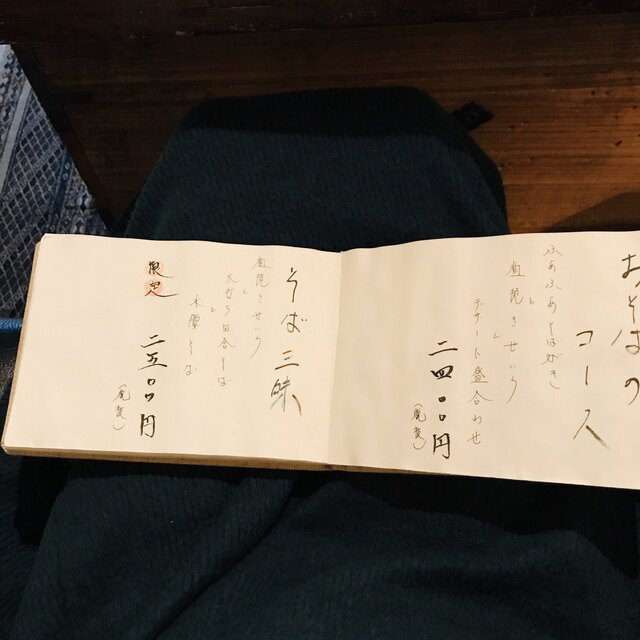 おそばの
コース
ふあふあそばがき
と
粗挽きせいろ
と
デザート盛合わせ
二四〇〇円
そば三昧
粗挽きせいろ
と
大なら田舎そば
と
限定
二五〇〇円